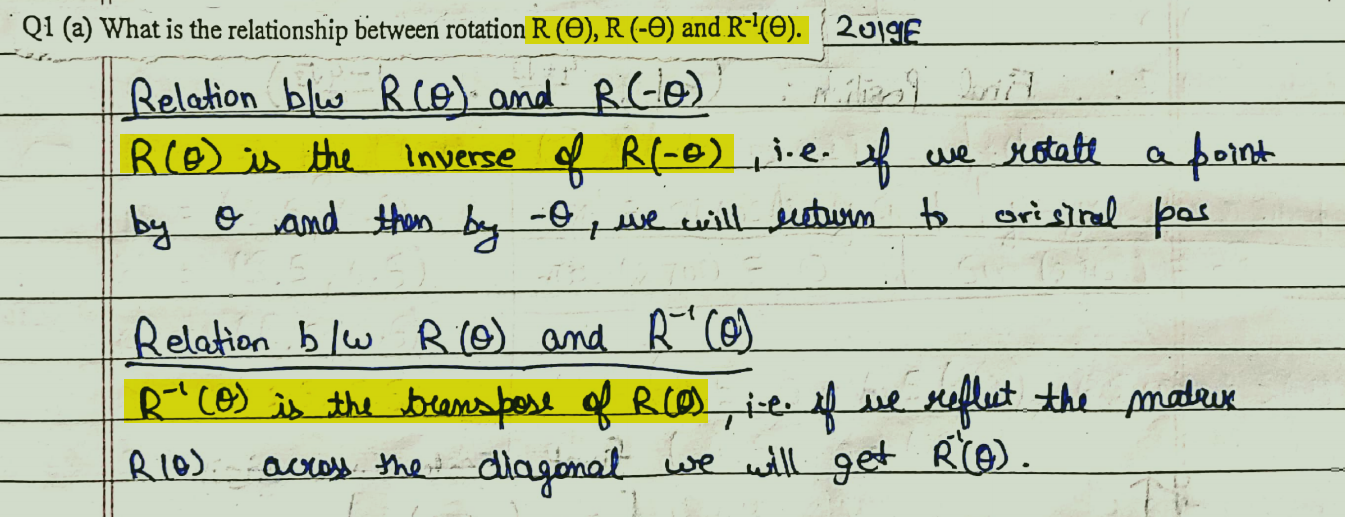 Q1 (a) What is the relationship between rotation R (Θ), R (-Θ) and R⁻¹(Θ). 2019E
Relation b/w R(θ) and R(-θ)
R(θ) is the inverse of R(-θ), i.e. if we rotate a point
by θ and then by -θ, we will return to original pos
Relation b/w R(θ) and R⁻¹(θ)
R⁻¹(θ) is the transpose of R(θ), i.e. if we reflect the matrix
R(θ) across the diagonal we will get R⁻¹(θ).